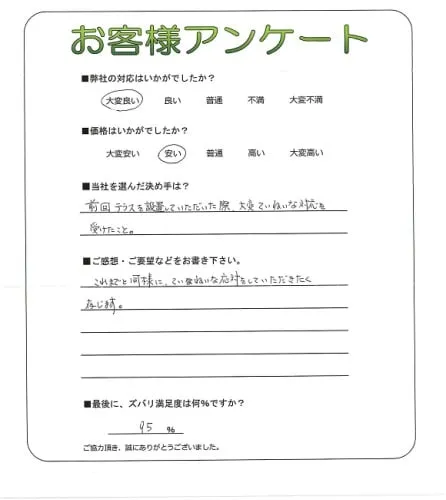 お客様アンケート
■弊社の対応はいかがでしたか?
大変良い 良い 普通 不満 大変不満
■価格はいかがでしたか?
大変安い 安い 普通 高い 大変高い
■当社を選んだ決め手は?
前回テラスを設置していただいた際、大変ていねいな対応を
受けたこと。
■ご感想・ご要望などをお書き下さい。
これまでと同様に、ていねいな応対をしていただきたく
存じ〼。
■最後に、ズバリ満足度は何%ですか?
95 %
ご協力頂き、誠にありがとうございました。